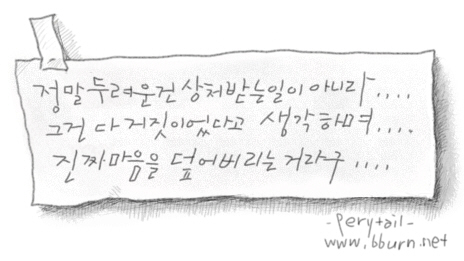 정말 두려운건 상처받는일이 아니라....
그건 다 거짓이었다고 생각하며....
진짜마음을 덮어버리는 거라구....
-perytail-
www.bburn.net